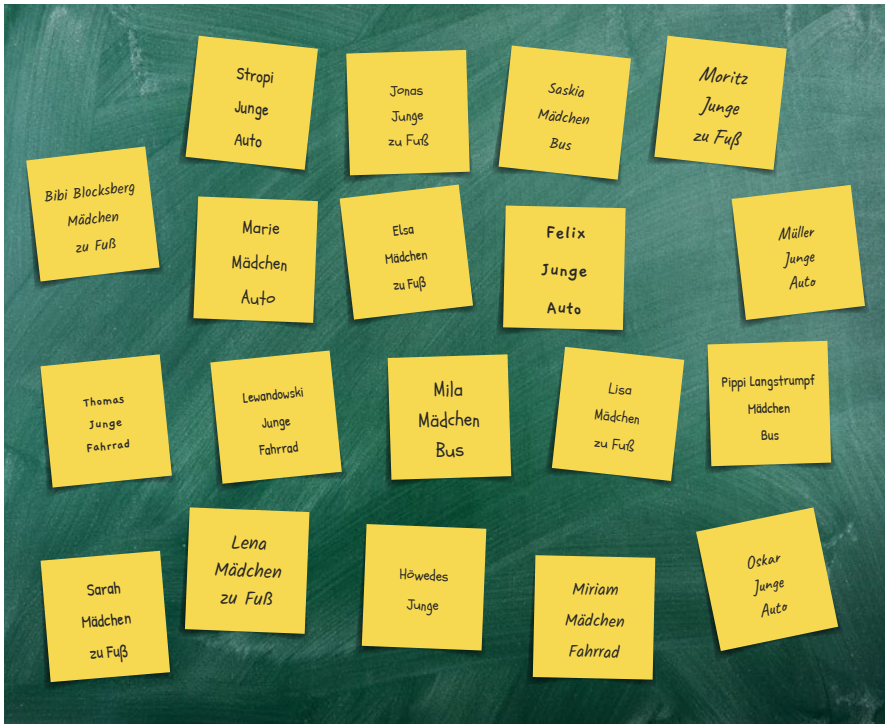 Stropi
Junge
Auto
Jonas
Junge
zu Fuß
Saskia
Mädchen
Bus
Moritz
Junge
zu Fuß
Bibi Blocksberg
Mädchen
zu Fuß
Marie
Mädchen
Auto
Elsa
Mädchen
zu Fuß
Felix
Junge
Auto
Müller
Junge
Auto
Thomas
Junge
Fahrrad
Lewandowski
Junge
Fahrrad
Mila
Mädchen
Bus
Lisa
Mädchen
zu Fuß
Pippi Langstrumpf
Mädchen
Bus
Sarah
Mädchen
zu Fuß
Lena
Mädchen
zu Fuß
Höwedes
Junge
Miriam
Mädchen
Fahrrad
Oskar
Junge
Auto